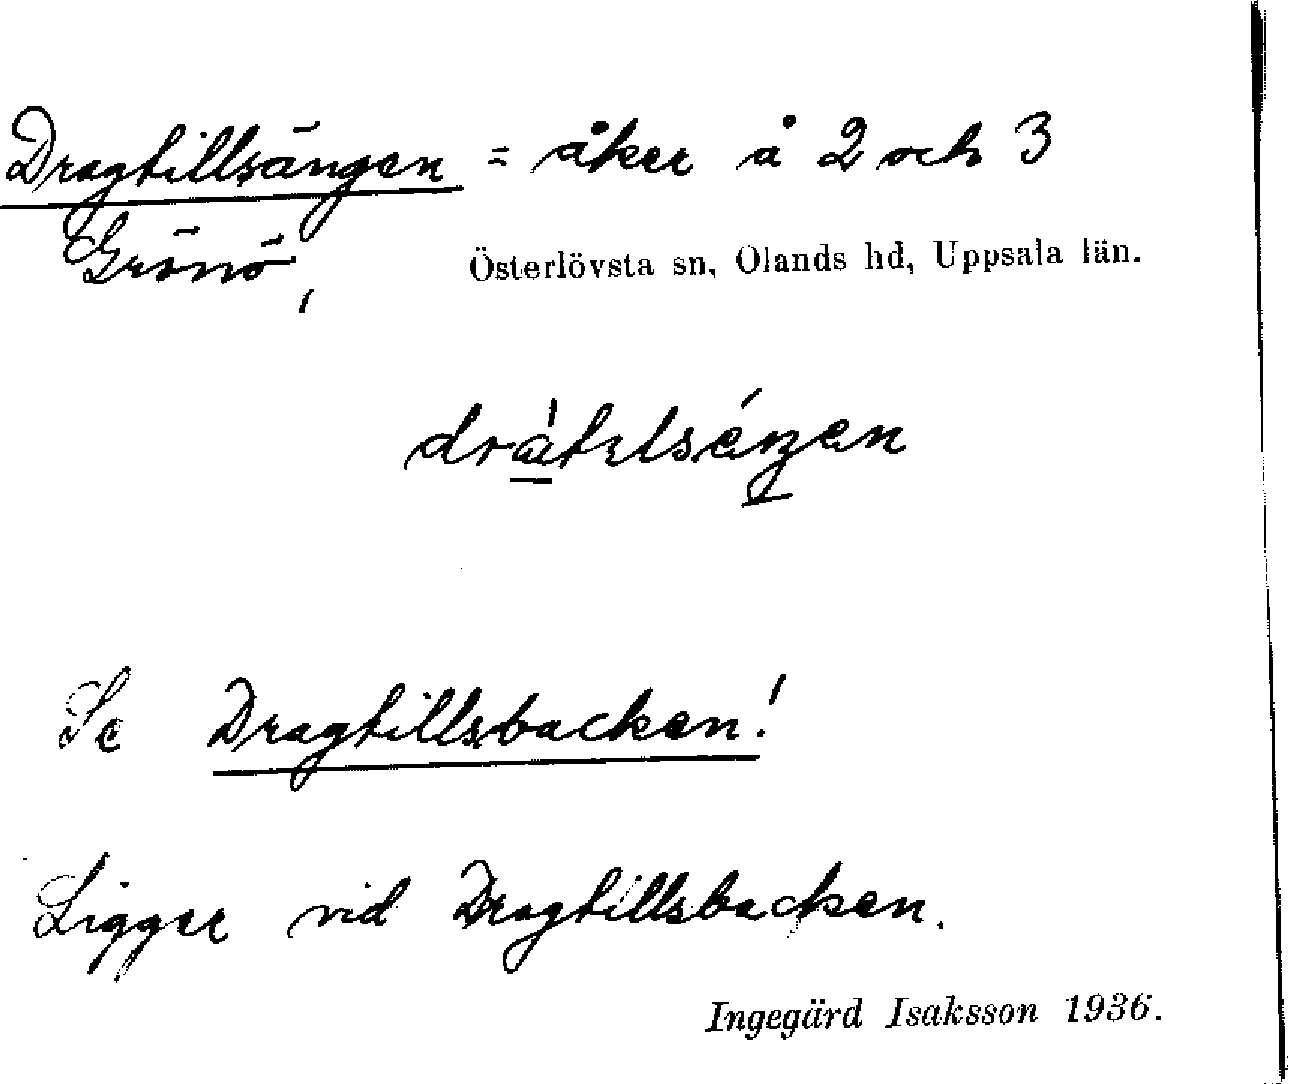 Dragtillsängen = åker å 2 och 3
Grönö,
Österlövsta sn, Olands hd, Uppsala län.
Se Dragtillsbacken!
Ligger vid Dragtillsbacken.
Ingegärd Isaksson 1936.